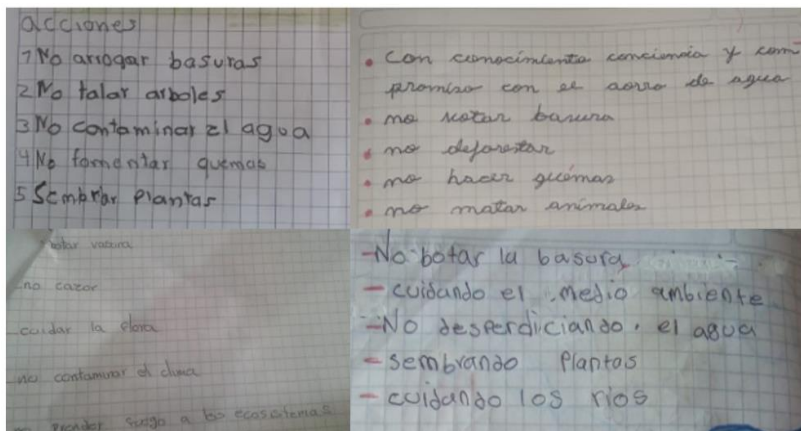 acciones
1 No arrogar basuras
2 No talar arboles
3 No contaminar el agua
4 No fomentar quemas
5 Sembrar plantas
• con conocimiento conciencia y com
promiso con el aorro de agua
• no votar basura
• no deforestar
• no hacer quemas
• no matar animales
botar vasura
no cazar
cuidar la flora
no contaminar el clima
prender fuego a los ecosistemas
-No botar la basura
- cuidando el medio ambiente
-No desperdiciando. el agua
- sembrando plantas
- cuidando los rios